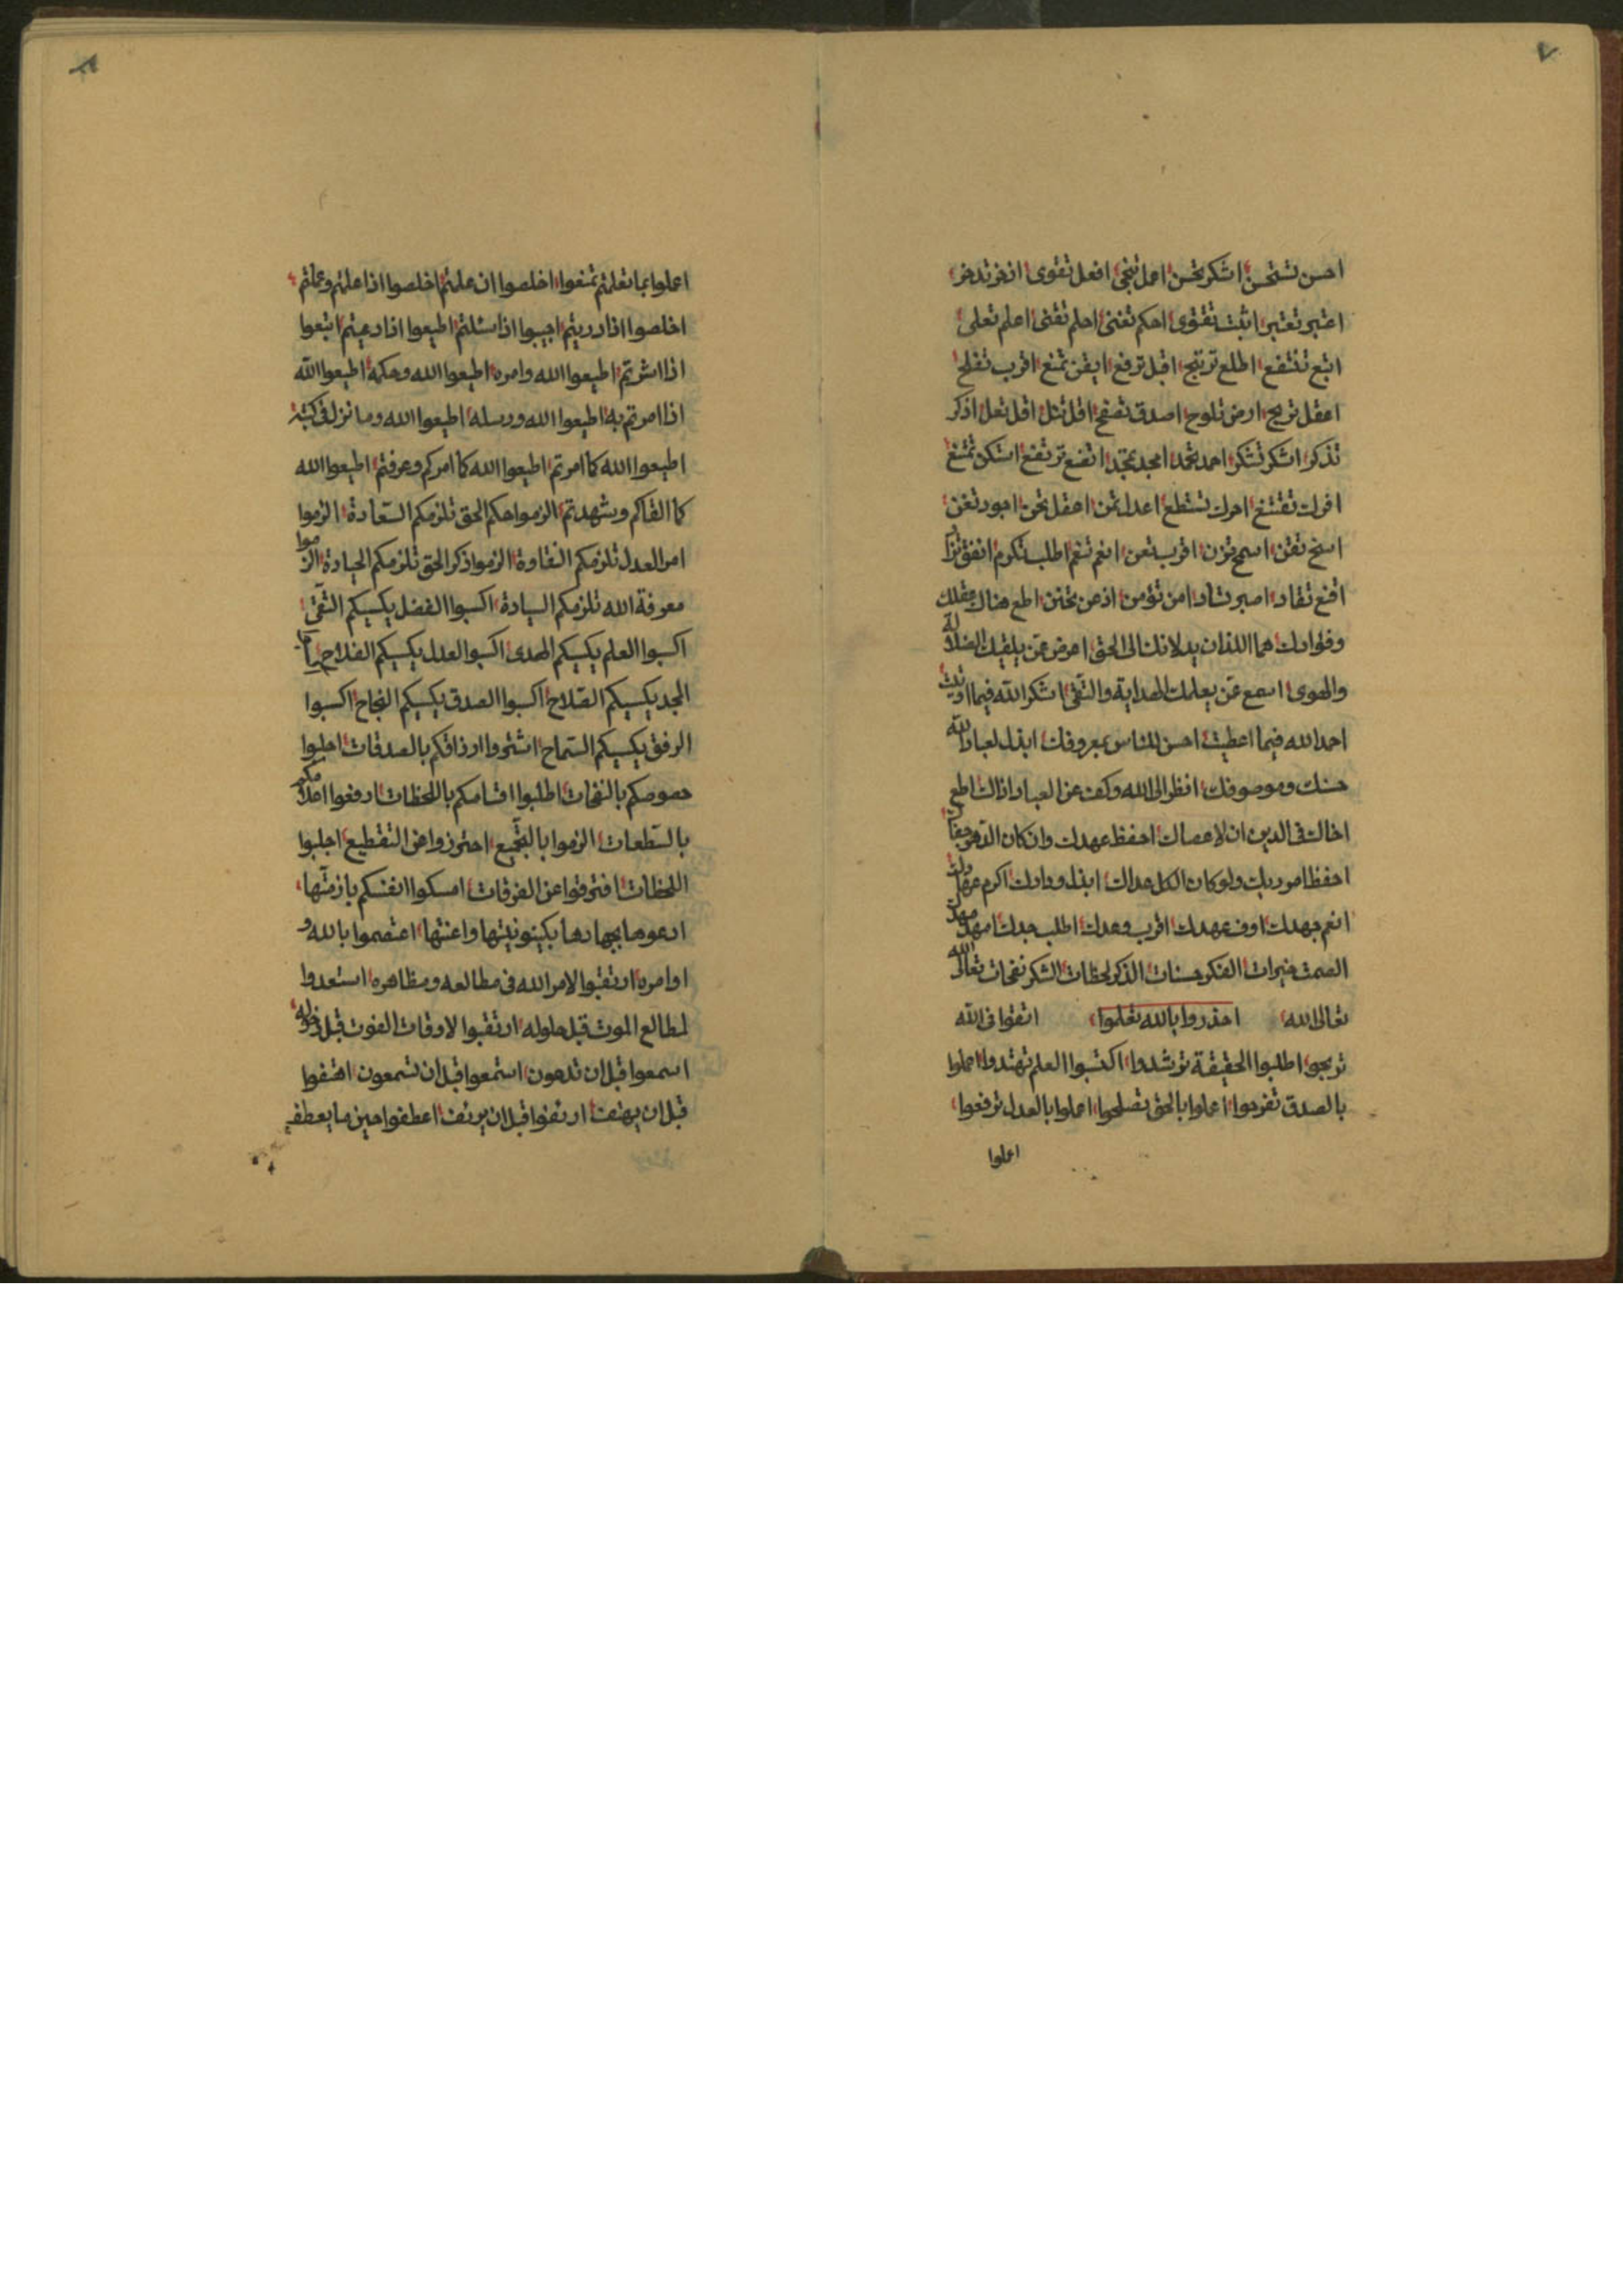 ٧
احسن تستحسن اشكر تحسن اعمل تنجى افعل تقوى اذخر تدخر
اعتبر تعتبر اثبت تقوى احكم تغنى احلم تقنى اعلم تعلى
اتبع تنتفع اطلع ترتبح اقبل ترفع ايقن تمنع اقرب تفلح
اعقل تربح ارض تلوح اصدق تصفح اقل تثل اقل تعل اذكر
تذكر اشكر تشكر احمد تحمد امجد تمجد اتضع ترتفع
اترك تقتنع احرك تستطع اعدل تمن اعقل تحن
اسخ تقن اسمح تزن اقرب تعن انعم تنعم اطلب تكرم انفق
اقنع تقاد اصبر تشاد امن تؤمن اذعن تختن اطع هناك عقلك
وفؤادك هما اللذان يدلانك الى الحق اعرض عمن يلقيك الضلالة
والهوى اسمع عمن يعلمك الهداية والتقى اشكر الله فيما اوتيت
احمد الله فيما اعطيت احسن للناس بمعروفك ابذل لعباد الله
حسنك وموصوفك انظر الى الله وكف عن العباد اذاك اطع
اخاك فى الدين ان لا عصاك احفظ عهدك وان كان الدهر جفاك
احفظ امور دينك ولو كان الكل عداك ابذل ودادك اكرم
انعم جهدك اوف عهدك اقرب وعدك اطلب جدك امهد مهدك
الصمت خيرات الفكر حسنات الذكر لحظات الشكر نفحات تعالى الله
تعالى الله احذروا بالله تعلموا اتقوا فى الله
تربحوا اطلبوا الحقيقة ترشدوا اكتسبوا العلم تهتدوا اعملوا
بالصدق تفرحوا اعملوا بالحق تصلحوا اعملوا بالعدل ترفعوا
اعملوا
٨
اعملوا بما تعلمتم تمنعوا اخلصوا ان علمتم اخلصوا اذا علمتم وعملتم
اخلصوا اذا دريتم اجيبوا اذا سئلتم اطيعوا اذا دعيتم اتبعوا
اذا اشرتم اطيعوا الله وامره اطيعوا الله وحكمه اطيعوا الله
اذا امرتم به اطيعوا الله ورسله اطيعوا الله وما نزل فى كتبه
اطيعوا الله كما امرتم اطيعوا الله كما امركم وعرفتم اطيعوا الله
كما القاكم وشهدتم الزموا حكم الحق تلزمكم السعادة الزموا
امر العدل تلزمكم النقاوة الزموا ذكر الحق تلزمكم الجيادة الزموا
معرفة الله تلزمكم السيادة اكسبوا الفضل يكسيكم التقى
اكسبوا العلم يكسيكم الهدى اكسبوا العدل يكسيكم الفلاح
المجد يكسيكم الصلاح اكسبوا الصدق يكسيكم النجاح اكسبوا
الرفق يكسيكم السماح اشتروا ارزاقكم بالصدقات اجلبوا
حصوصكم بالنفحات اطلبوا اقسامكم باللحظات ارفعوا اعلامكم
بالسطعات الزموا بالتجميع احترزوا من التقطيع اجلبوا
اللحظات افترقوا عن الفرقات امسكوا انفسكم بازمتها
ادعوها بجهادها بكينونيتها واعنتها اعتصموا بالله و
اوامره ارتقبوا لامر الله فى مطالعه ومظاهره استعدوا
لمطالع الموت قبل حلوله ارتقبوا لاوقات الفوت قبل دخوله
اسمعوا قبل ان تدعون استمعوا قبل ان تسمعون اهتفوا
قبل ان يهتف ارتفوا قبل ان يرتف اعطفوا حين ما يعطف